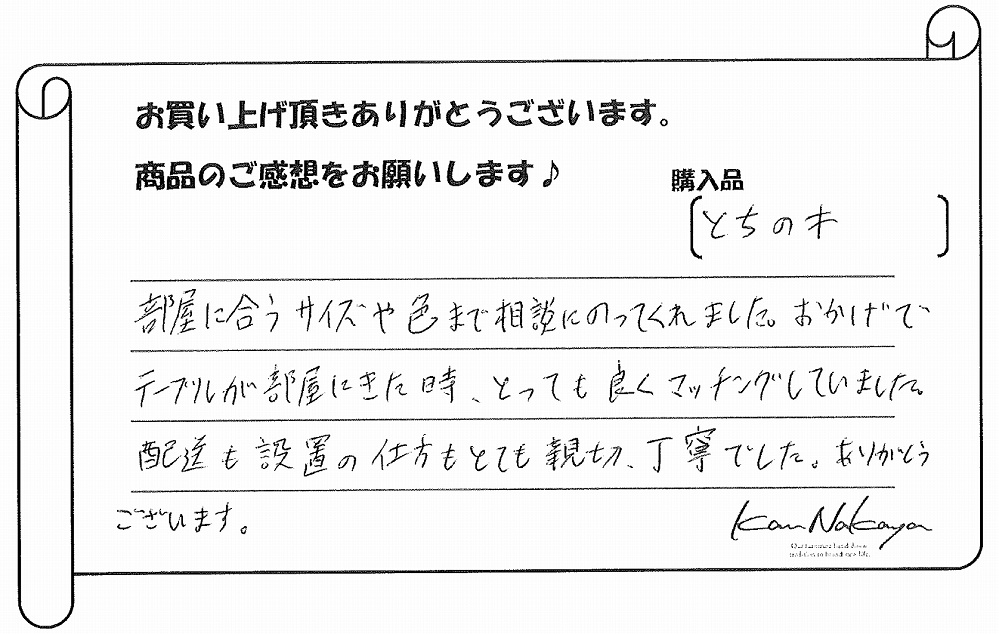 お買い上げ頂きありがとうございます。
商品のご感想をお願いします♪
購入品
[とちの木]
部屋に合うサイズや色まで相談にのってくれました。おかげで
テーブルが部屋にきた時、とっても良くマッチングしていました。
配送も設置の仕方もとても親切、丁寧でした。ありがとう
ございます。
Kan Nakaya